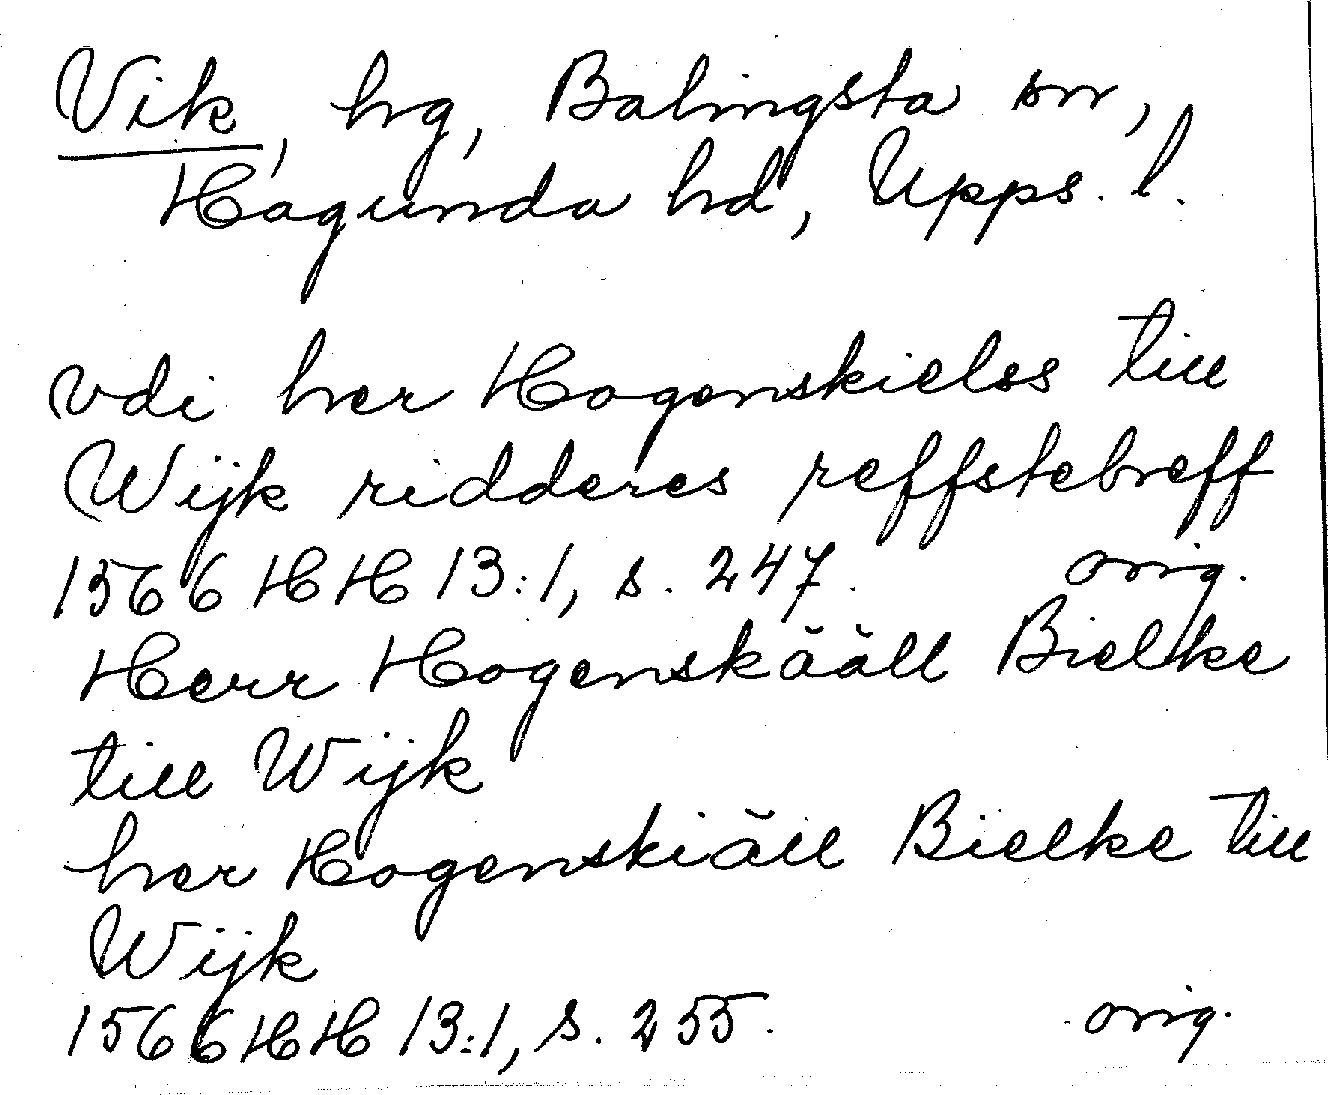 Vik, hg, Balingsta sn,
Hagunda hd, Upps. l.
vdi her Hogenskielss till
Wijk ridderes reffstebreff
1566 HH 13:1, s. 247. orig.
Herr Hogenskååll Bielke
till Wijk
her Hogenskiåll Bielke till
Wijk
1566 HH 13:1, s. 255. orig.